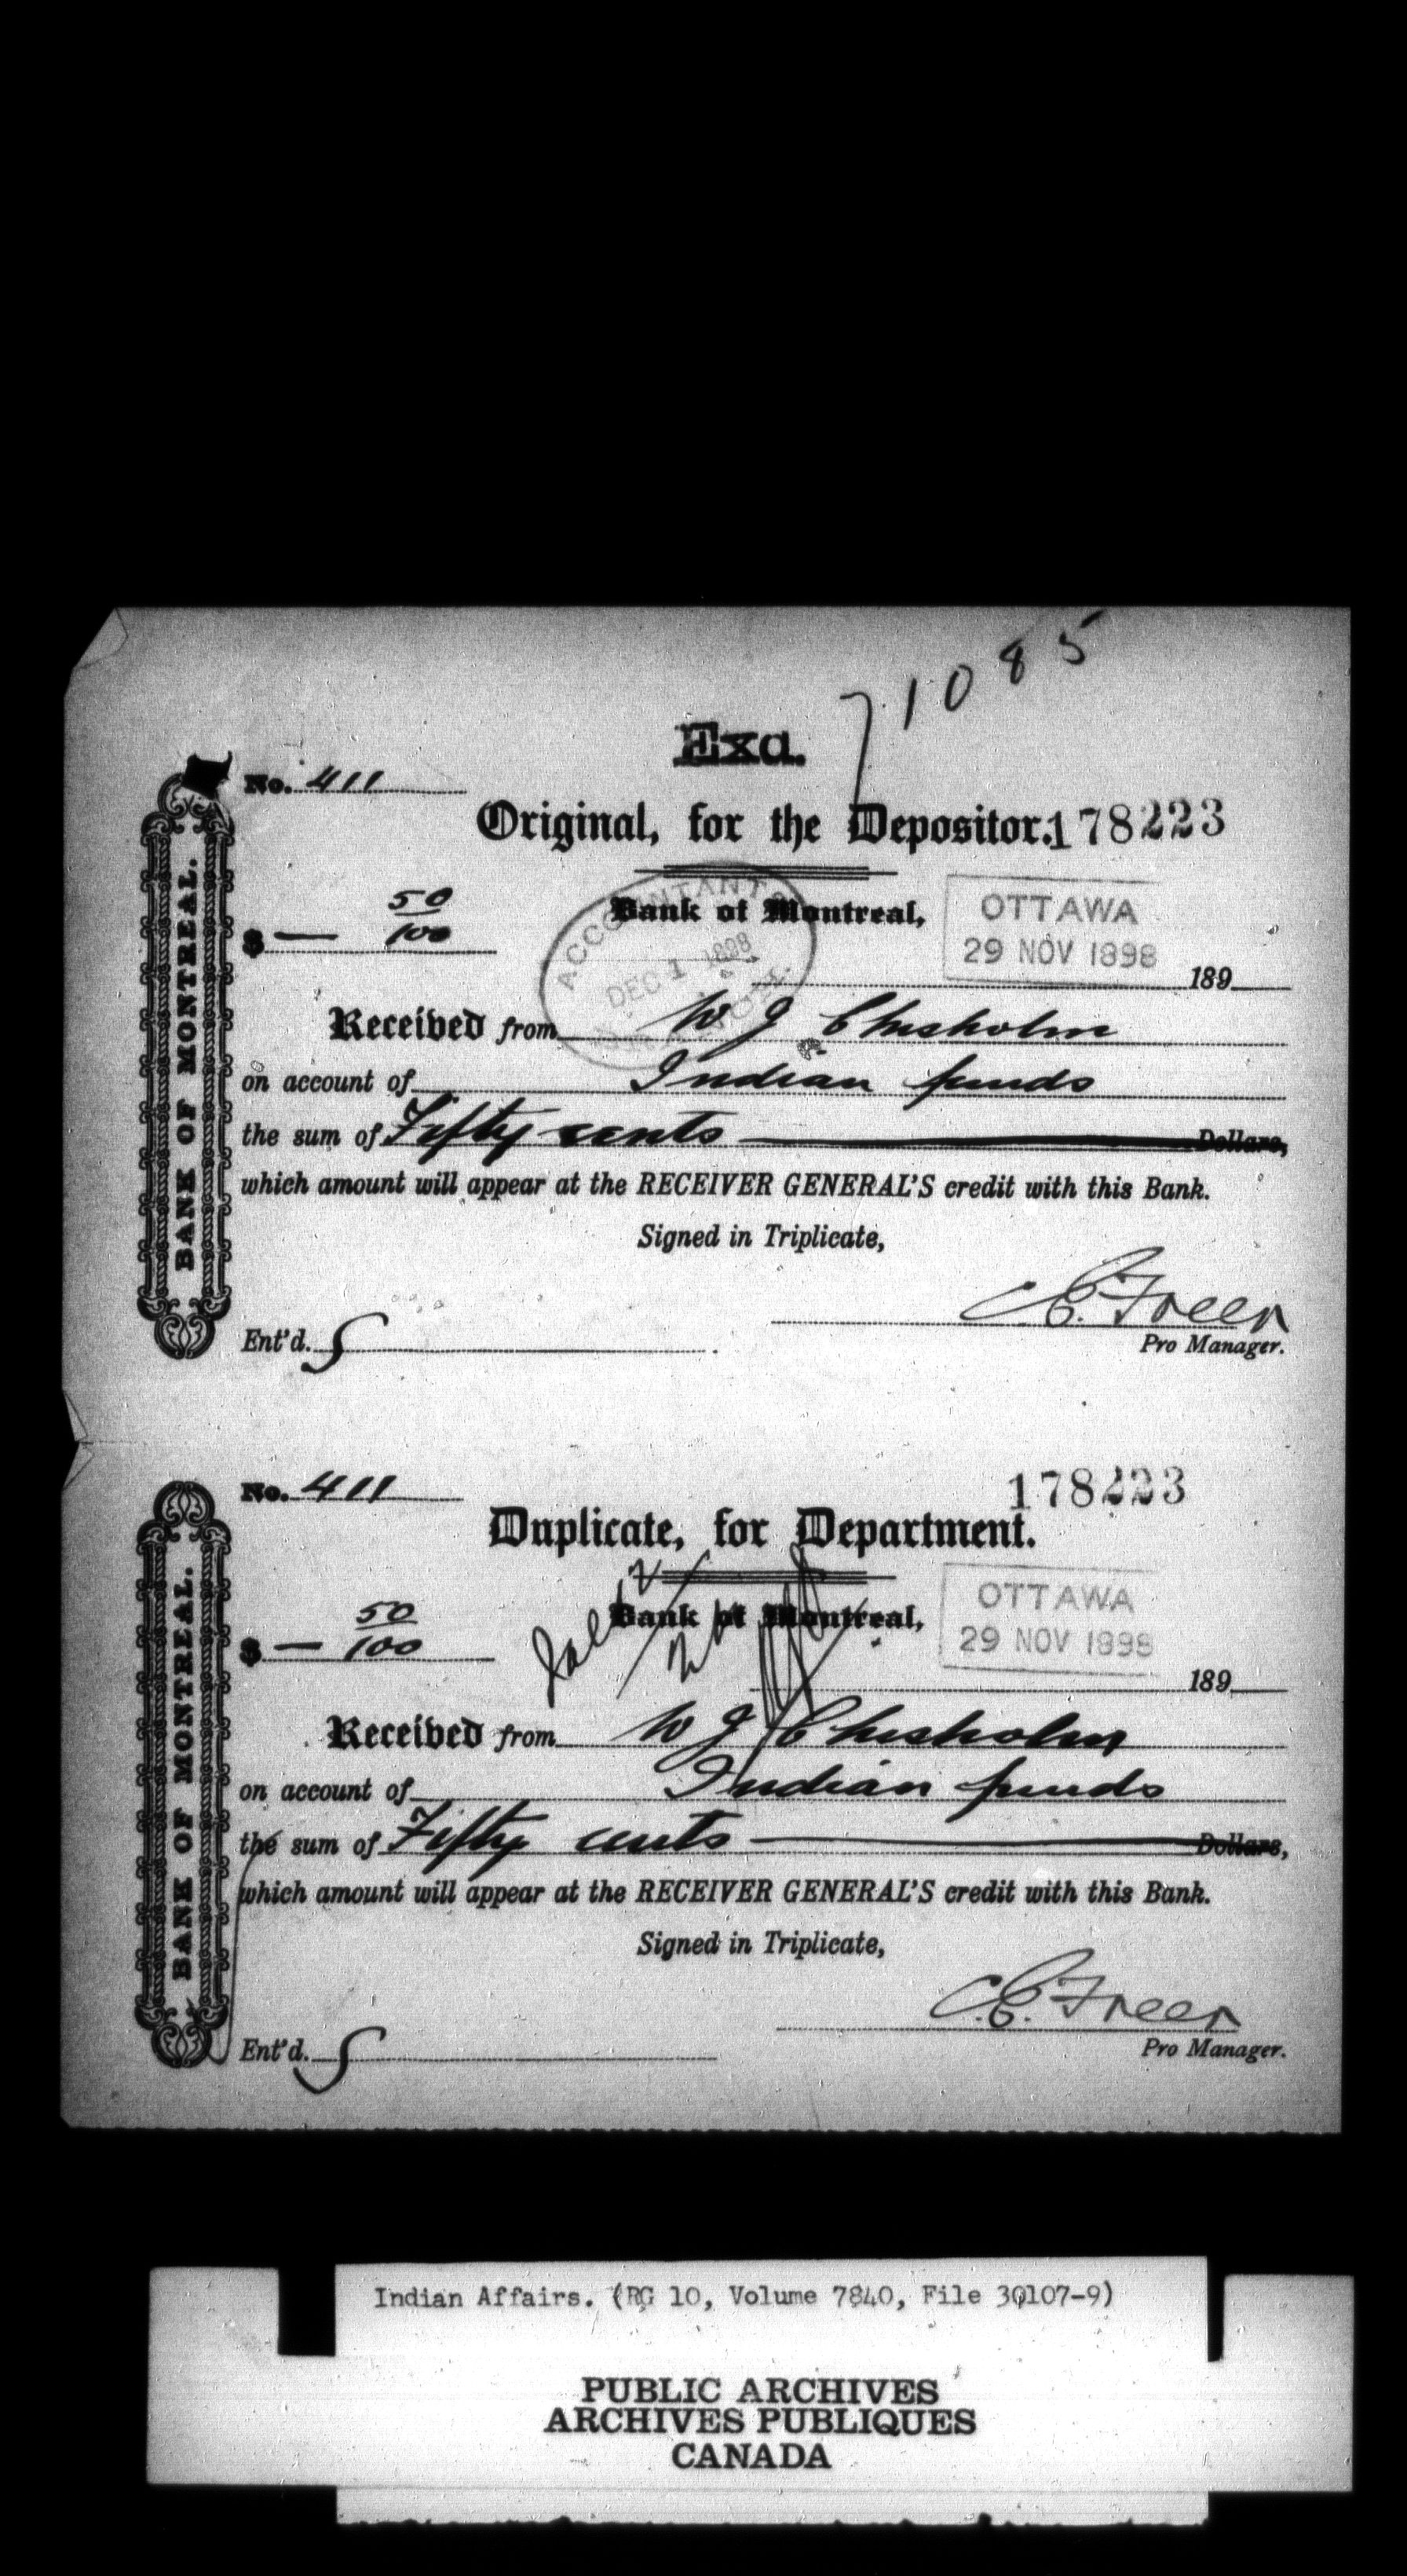 71085
Exd.
No. 411
Original, for the Depositor. 178223
BANK OF MONTREAL.
$ — 50/100
Bank of Montreal,
ACCOUNTANTS
DEC 1 1898
OTTAWA
29 NOV 1898
189
Received from W J Chisholm
on account of Indian funds
the sum of Fifty cents Dollars,
which amount will appear at the RECEIVER GENERAL'S credit with this Bank.
Signed in Triplicate,
C.E. Freer
Ent'd. S
Pro Manager.
No. 411
178223
Duplicate, for Department.
BANK OF MONTREAL.
$ — 50/100
Bank of Montreal,
OTTAWA
29 NOV 1898
189
Received from W J Chisholm
on account of Indian funds
the sum of Fifty cents Dollars,
which amount will appear at the RECEIVER GENERAL'S credit with this Bank.
Signed in Triplicate,
C.E. Freer
Ent'd. S
Pro Manager.
Indian Affairs. (RG 10, Volume 7840, File 30107-9)
PUBLIC ARCHIVES
ARCHIVES PUBLIQUES
CANADA